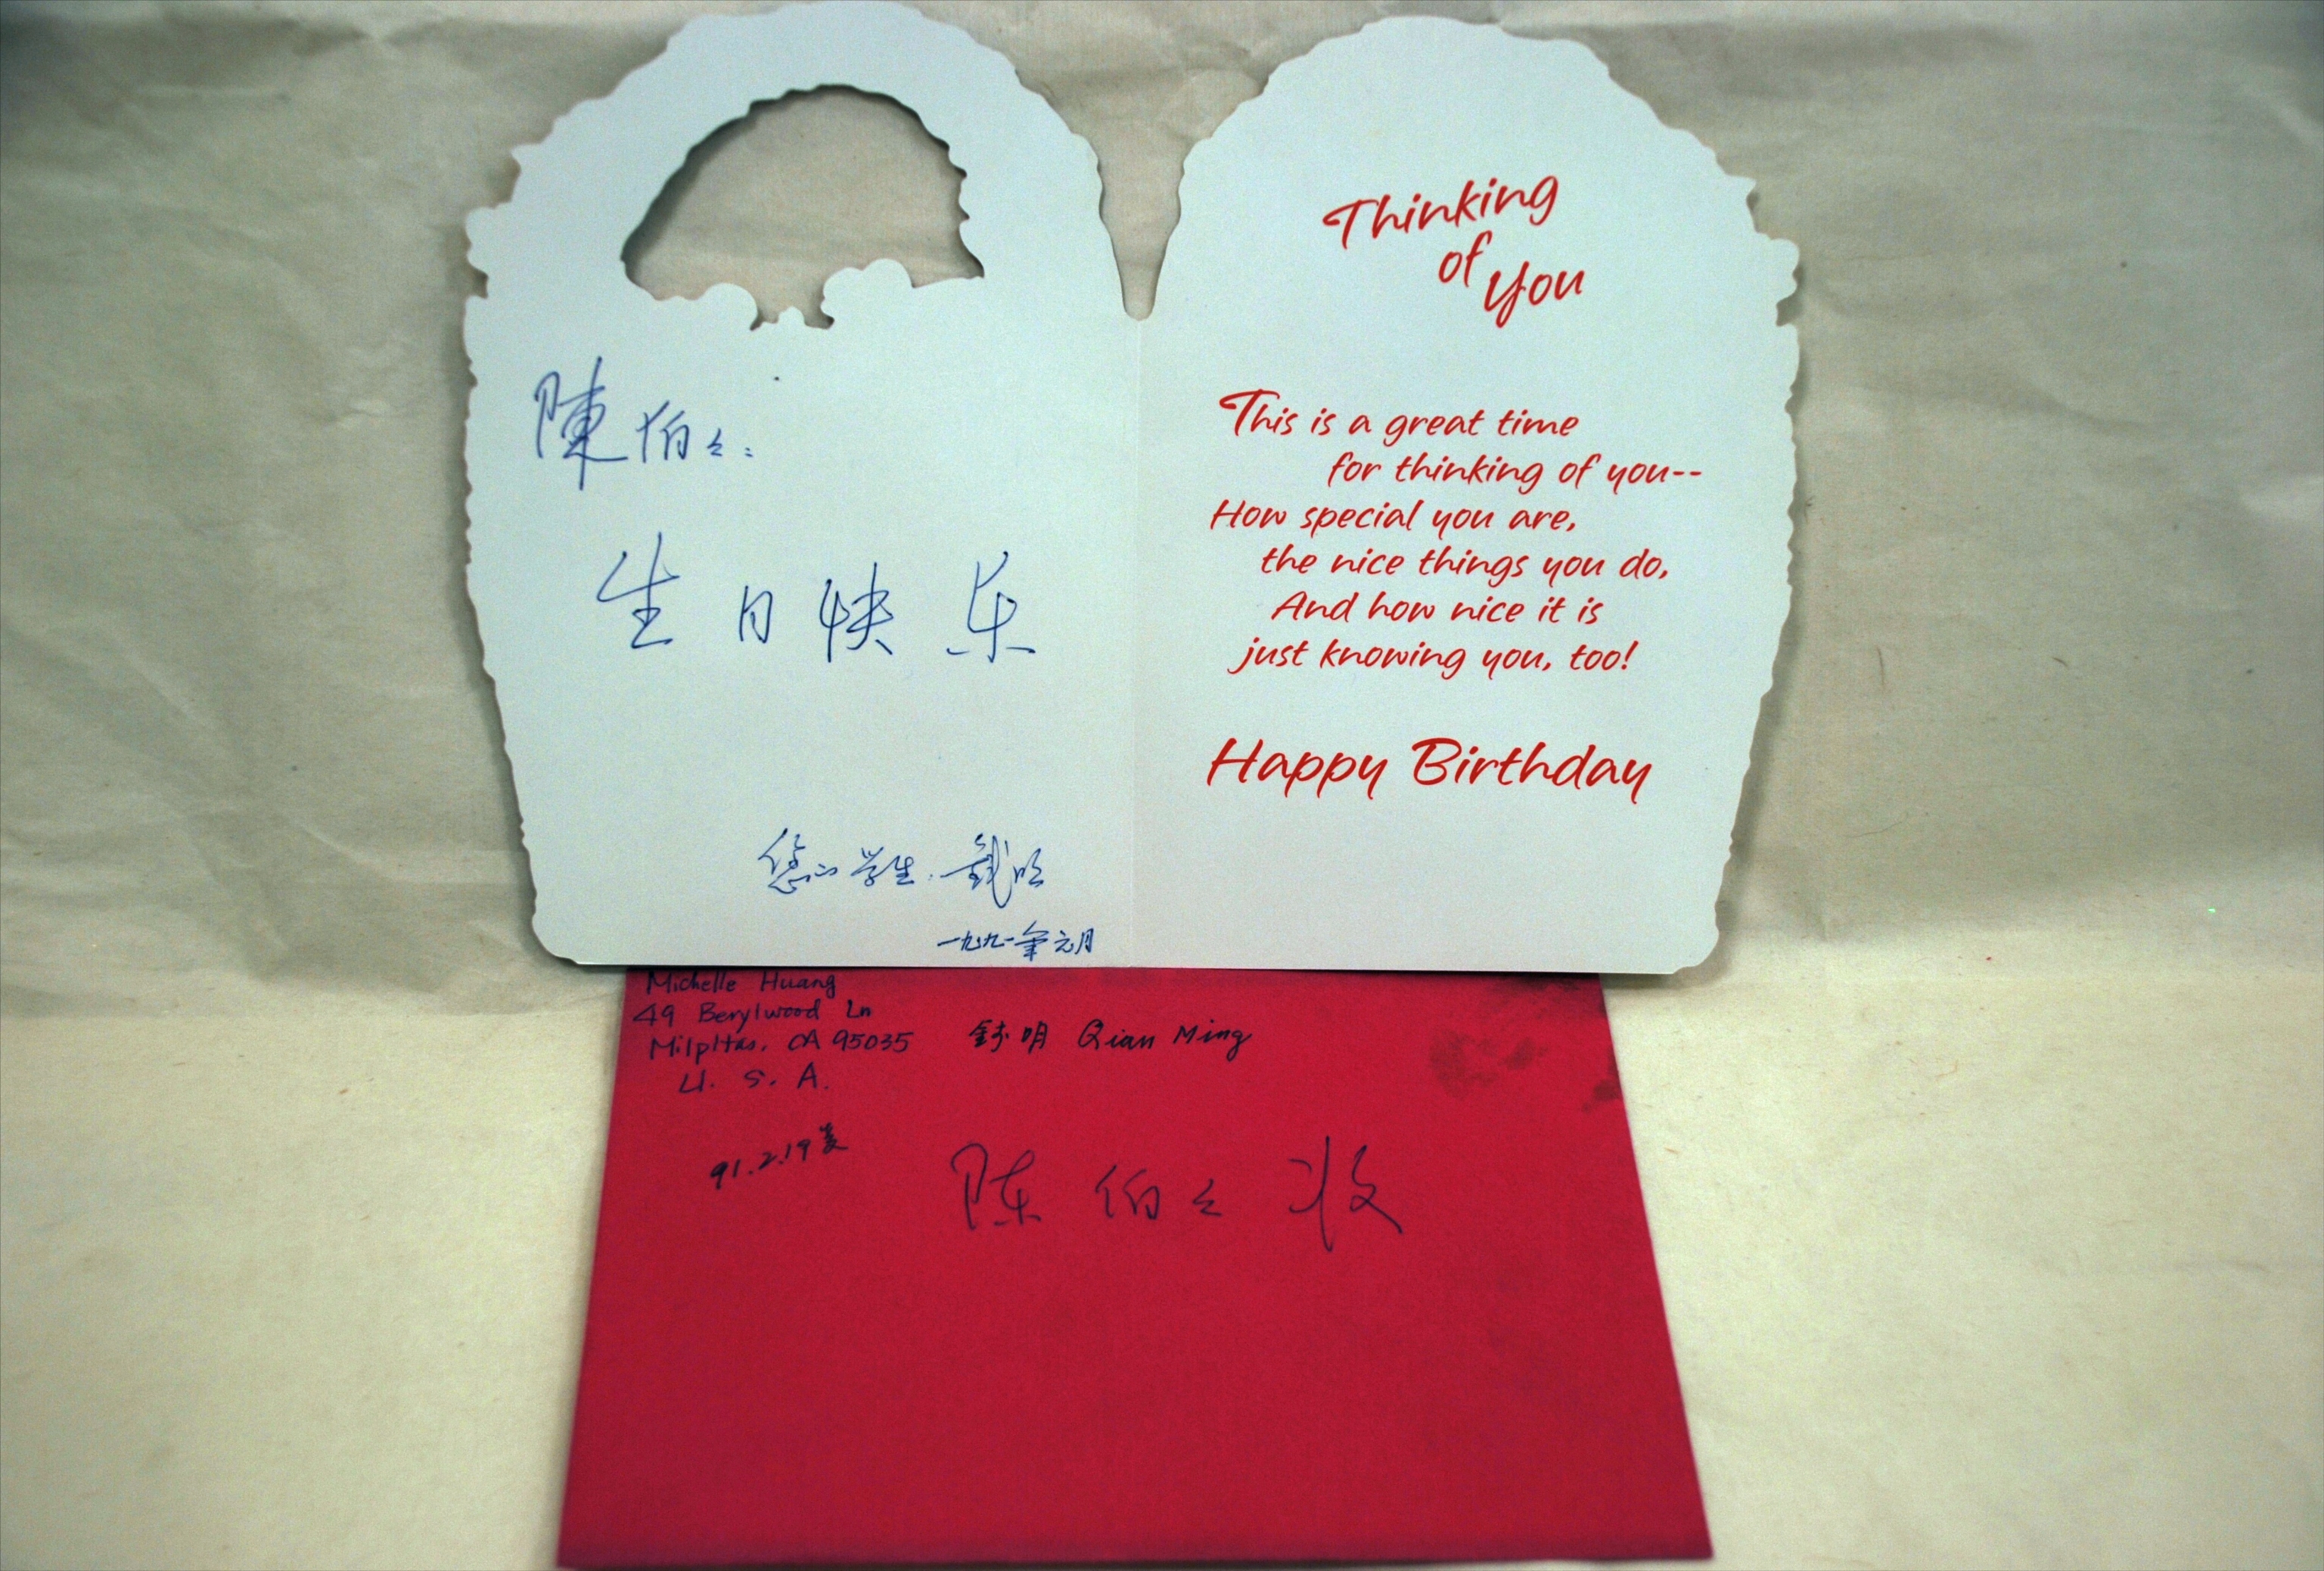 陳伯伯:
生日快乐
您的学生:钱明
一九九一年元月
Thinking
of
You
This is a great time
for thinking of you--
How special you are,
the nice things you do,
And how nice it is
just knowing you, too!
Happy Birthday
Michelle Huang
49 Berylwood Ln
Milpitas, CA 95035
U. S. A.
錢明 Qian Ming
91.2.19
陈伯伯收